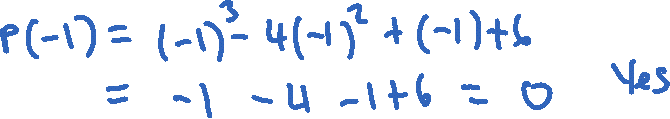 P(-1) = (-1)³ - 4(-1)² + (-1) + 6
= -1 - 4 - 1 + 6 = 0 Yes